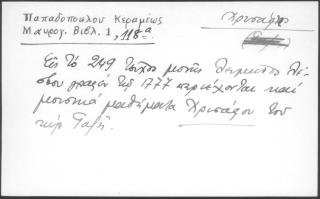 Παπαδοπούλου Κεραμέως
Μαυρογ. Βιβλ. 1, 118α
Χρυσάφης
Εις το 249 τεύχος μονής Λειμώνος Λέ-
σβου γραφέν τῷ 1777 περιέχονται καί
μουσικά μαθήματα Χρυσάφου του
κύρ